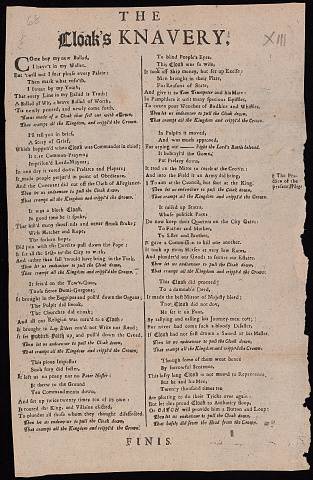 THE
Cloak's KNAVERY,
XIII
COme buy my new Ballad,
I hav't in my Wallet,
But 'twill not I fear please every Palate:
Then mark what ensu'th,
I swear by my Youth,
That every Line in my Ballad is Truth:
A Ballad of Wit, a brave Ballad of Worth,
'Tis newly printed, and newly come forth,
'Twas made of a Cloak that fell out with a Gown,
That crampt all the Kingdom and cripp'd the Crown.
I'll tell you in brief,
A Story of Grief,
Which happen'd when Cloak was Commander in chief;
It tore Common Prayers,
Imprison'd Lord-Mayors,
In one day it voted down Prelates and Players;
It made people perjur'd in point of Obedience,
And the Covenant did cut off the Oath of Allegiance.
Then let us endeavour to pull the Cloak down,
That crampt all the Kingdom and cripp'd the Crown.
It was a black Cloak,
In good time be it spoke,
That kill'd many thousands and never struck stroke;
With Hatchet and Rope,
The forlorn hope,
Did join with the Devil to pull down the Pope;
It set all the Sects in the City to work,
And rather than fail 'twould have bring in the Turk,
Then let us endeavour to pull the Cloak down,
That crampt all the Kingdom and cripp'd the Crown.
It seiz'd on the Tow'r-Guns,
Those fierce Demi-Gorgons,
It brought in the Bagpipes and pull'd down the Organs;
The Pulpits did smoak,
The Churches did choak;
And all our Religion was turn'd to a Cloak:
It brought in Lay Elders could not Write nor Read;
It set Publick Faith up, and pull'd down the Creed,
Then let us endeavour to pull the Cloak down,
That crampt all the Kingdom and cripp'd the Crown;
This pious Impostor
Such fury did foster,
It left us no penny nor no Pater Noster:
It threw to the Ground
Ten Commandments down,
And set up twice twenty times ten of its own:
It routed the King, and Villains elected,
To plunder all those whom they thought disaffected.
Then let us endeavour to pull the Cloak down,
That crampt all the Kingdom and cripp'd the Crown.
To blind People's Eyes,
This Cloak was so wise,
It took off Ship money, but set up Excise;
Men brought in their Plate,
For Reasons of State,
And gave it to Tom Trumpeter and his Mate:
In Pamphlets it writ many specious Epistles,
To cozen poor Wenches of Bodkins and Whistles.
Then let us endeavour to pull the Cloak down,
That crampt all the Kingdom and cripp'd the Crown.
In Pulpits it moved,
And was much approved,
For crying out Fight the Lord's Battels beloved.
It betray'd the Gown,
Put Prelacy down,
It trod on the Mitre to reach at the Crown:
And into the Field it an Army did bring,
To aim at the Council, but shot at the King.
Then let us endeavour to pull the Cloak down,
That crampt all the Kingdom and cripp'd the Crown.
It raised up States,
Whose politick Pates
Do now keep their Quarters on the City Gates:
To Father and Mother,
To Sister and Brother,
It gave a Commission to kill one another.
It took up mens Horses at very low Rates,
And plunder'd our Goods to secure our Estates.
Then let us endeavour to pull the Cloak down,
That crampt all the Kingdom and cripp'd the Crown.
This Cloak did proceed
To a damnable Deed,
It made the best Mirror of Majesty bleed;
Tho' Cloak did not do't,
He set it on Foot,
By rallying and calling his Journey-men to't;
For never had come such a bloody Disaster,
If Cloak had not first drawn a Sword at his Master.
Then let us endeavour to pull the Cloak down,
That crampt all the Kingdom and cripp'd the Crown.
Though some of them went hence
By sorrowful Sentence,
This lofty long Cloak is not moved to Repentance,
But he and his Men,
Twenty thousand times ten
Are plotting to do their Tricks over again:
But let this proud Cloak to Authority stoop,
Or CATCH will provide him a Button and Loop:
Then let us endeavour to pull the Cloak down,
That basely did from the Head from the Crown.
FINIS.